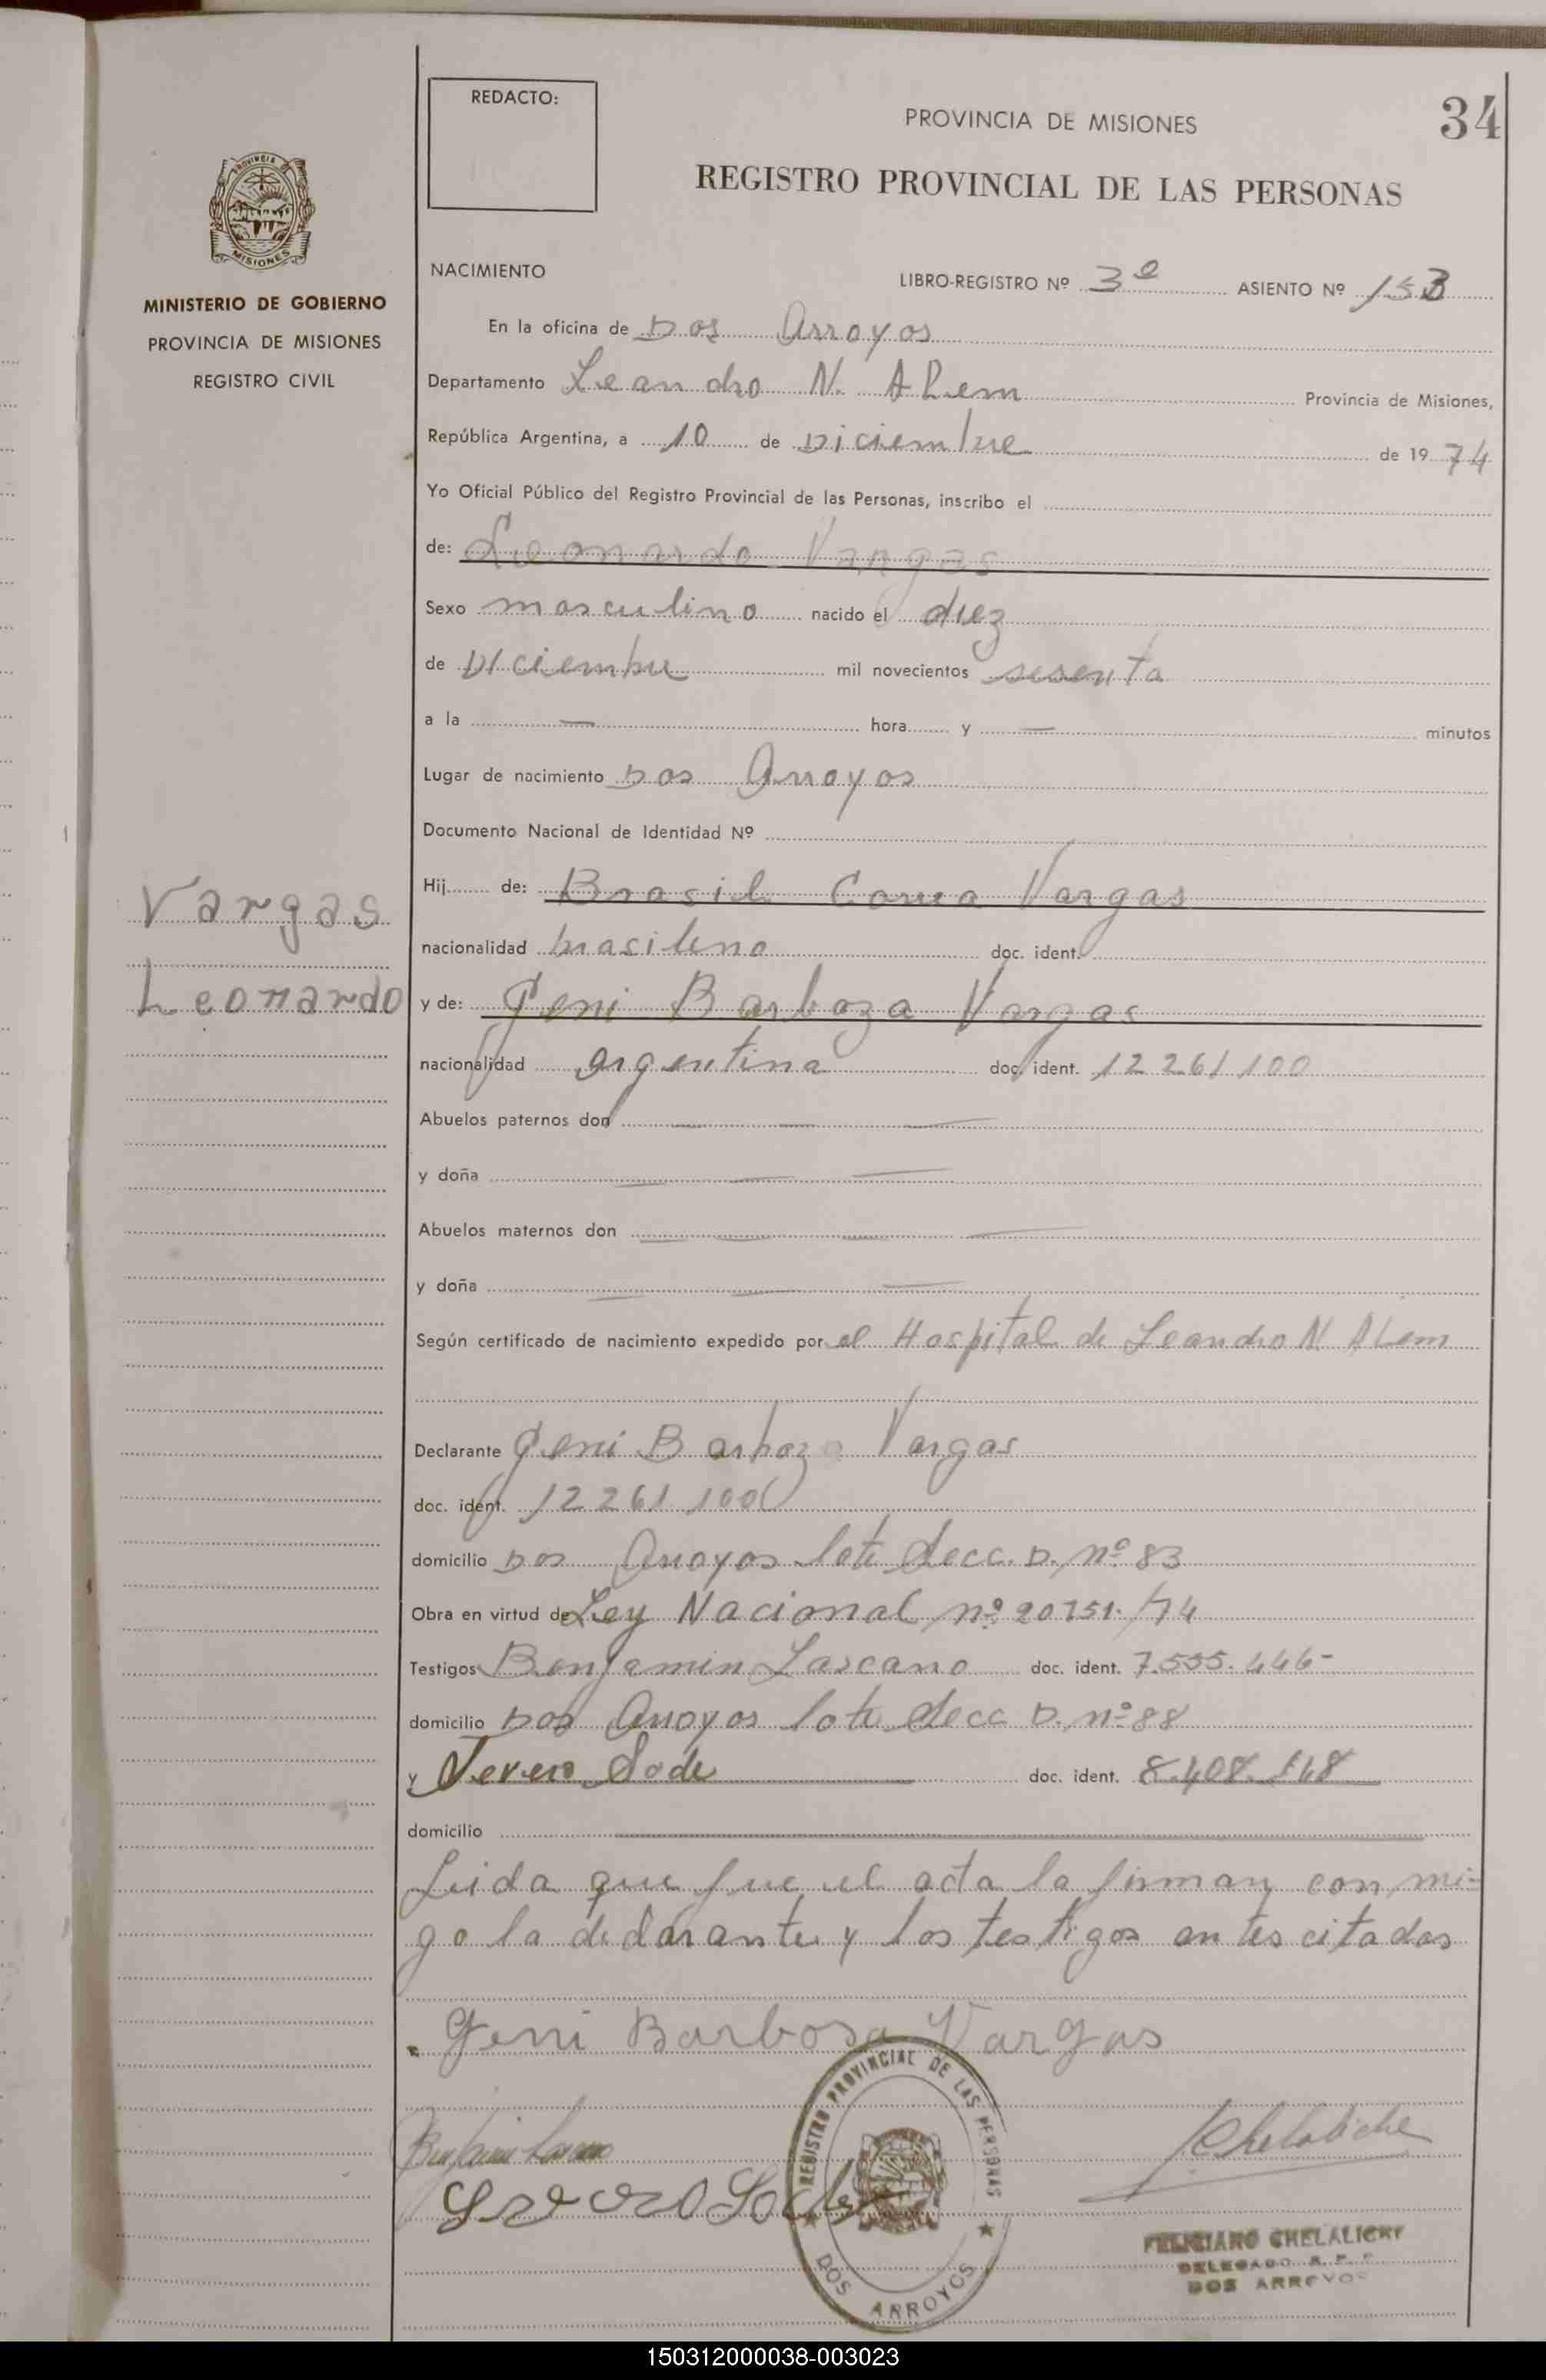 34
REDACTO:
PROVINCIA DE MISIONES
REGISTRO PROVINCIAL DE LAS PERSONAS
PROVINCIA
MISIONES
MINISTERIO DE GOBIERNO
PROVINCIA DE MISIONES
REGISTRO CIVIL
NACIMIENTO
LIBRO-REGISTRO Nº 3º ASIENTO Nº 153
En la oficina de Dos Arroyos
Departamento Leandro N. Alem Provincia de Misiones,
República Argentina, a 10 de Diciembre de 19 74
Yo Oficial Público del Registro Provincial de las Personas, inscribo el
de: Leonardo Vargas
Sexo masculino nacido el diez
de Diciembre mil novecientos sesenta
a la — hora y — minutos
Lugar de nacimiento Dos Arroyos
Documento Nacional de Identidad Nº
Vargas
Leonardo
Hij de: Brasil Correa Vargas
nacionalidad brasileno doc. ident.
y de: Geni Barboza Vargas
nacionalidad argentina doc. ident. 12261100
Abuelos paternos don — — —
y doña — — —
Abuelos maternos don — — — —
y doña — — —
Según certificado de nacimiento expedido por el Hospital de Leandro N. Alem
Declarante Geni Barboza Vargas
doc. ident. 12261100
domicilio Dos Arroyos lote Secc. D. nº 83
Obra en virtud de Ley Nacional nº 20751/74
Testigos Benjamin Lascano doc. ident. 7.555.446-
domicilio Dos Arroyos lote Secc D. nº 88
y Severo Sode doc. ident. 8.408.548
domicilio
Leida que fue el acta la firman con mi-
go la declarante y los testigos antes citados
Geni Barbosa Vargas
REGISTRO PROVINCIAL DE LAS PERSONAS
DOS ARROYOS
FELICIANO CHELALICHE
DELEGADO R. P. P.
DOS ARROYOS
150312000038-003023